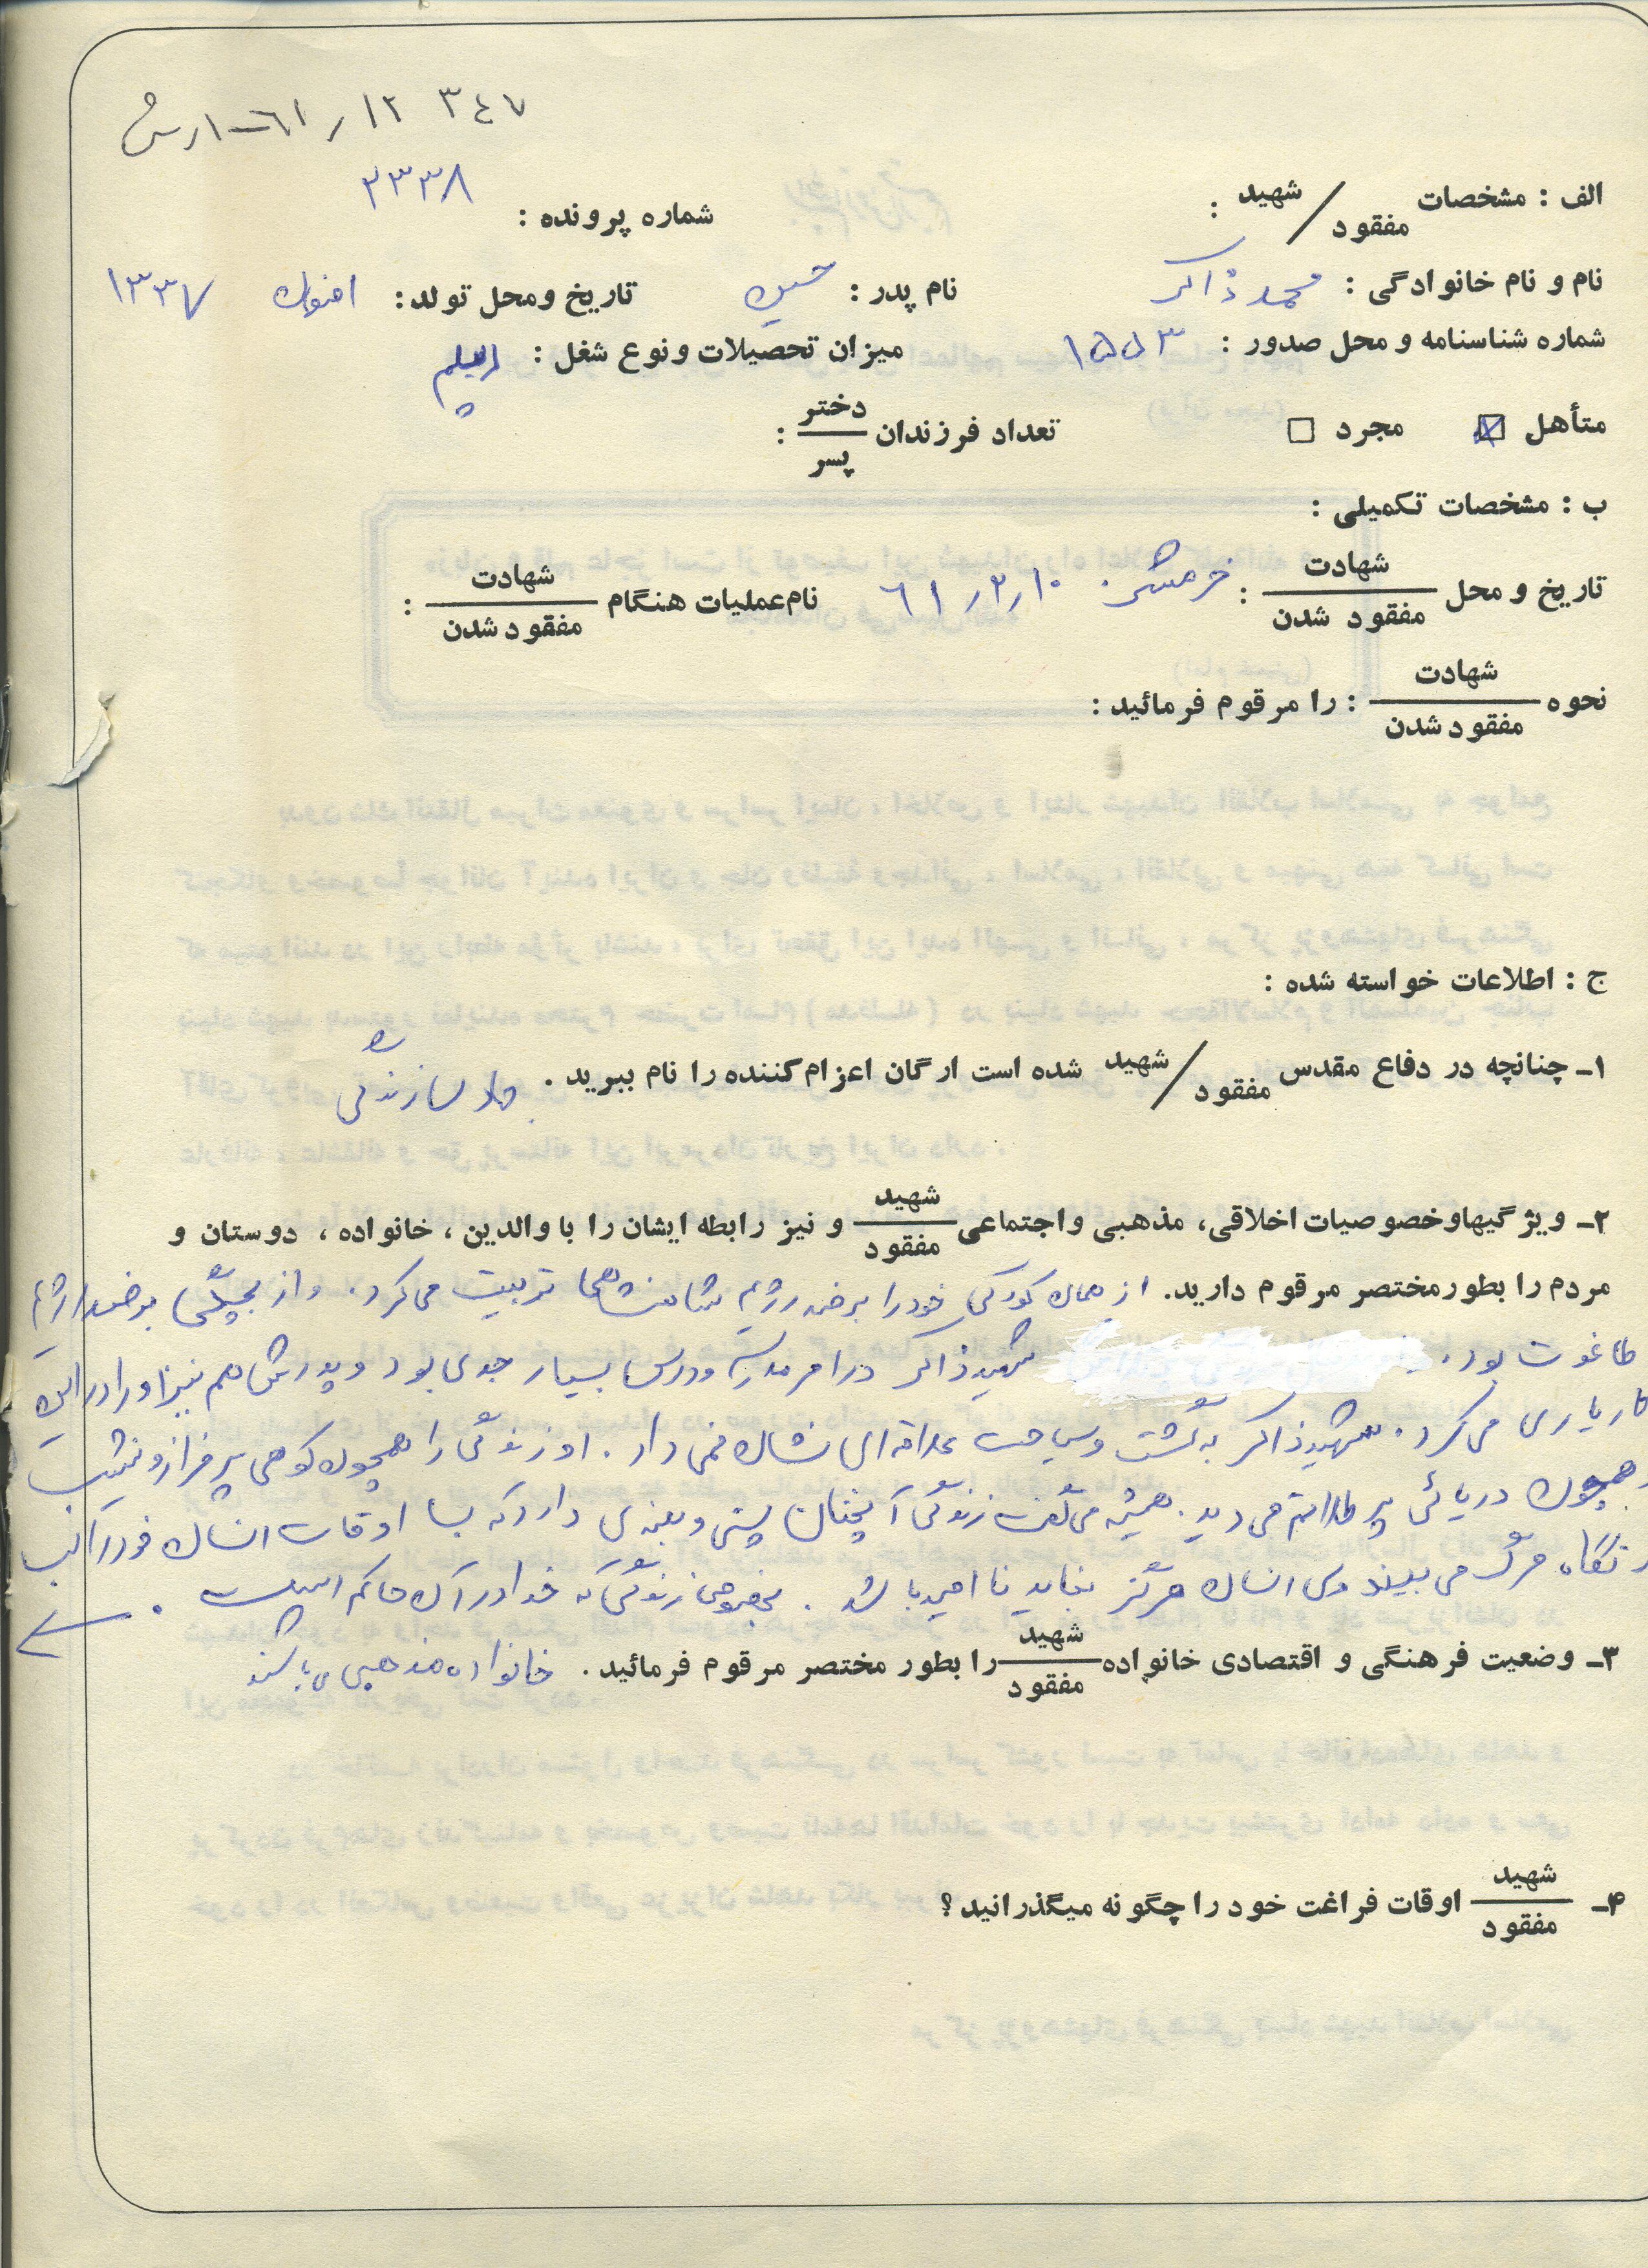 ۳۴۷ ۱۲ ر ۶۱ـ۱رس
الف : مشخصات شهید / مفقود :
شماره پرونده : ۲۳۳۸
نام و نام خانوادگی : محمد ذاکر نام پدر : حسین تاریخ ومحل تولد : ۱۳۳۷
شماره شناسنامه و محل صدور : ۱۵۵۳ میزان تحصیلات ونوع شغل : دیپلم
متأهل ☒ مجرد □ تعداد فرزندان دختر / پسر :
ب : مشخصات تکمیلی :
تاریخ و محل شهادت / مفقود شدن : خرمشهر ۶۱٫۲٫۱۰ نام عملیات هنگام شهادت / مفقود شدن :
نحوه شهادت / مفقود شدن : را مرقوم فرمائید :
ج : اطلاعات خواسته شده :
۱ـ چنانچه در دفاع مقدس شهید / مفقود شده است ارگان اعزام کننده را نام ببرید . جهاد سازندگی
۲ـ ویژگیهاوخصوصیات اخلاقی، مذهبی واجتماعی شهید / مفقود و نیز رابطه ایشان را با والدین ، خانواده ، دوستان و
مردم را بطورمختصر مرقوم دارید. از همان کودکی خود را بر ضد رژیم شاهنشاهی تربیت می کرد. و از بچگی بر ضد رژیم
طاغوت بود . شهید ذاکر در امر مدرسه و درس بسیار جدی بود و پدرش هم نیز او را در این
کار یاری می کرد . شهید ذاکر به گشت و سیاحت علاقه ای نشان نمی داد . او زندگی را همچون کوهی پر فراز و نشیب
همچون دریائی پر طلاطم می دید . همیشه می گفت زندگی آنچنان پستی و بلندی دارد که بسا اوقات انسان خود را
مرگ می بیند ولی انسان هرگز نباید نا امید باشد . بخصوص زندگی که خدا در آن حاکم است .
۳ـ وضعیت فرهنگی و اقتصادی خانواده شهید / مفقود را بطور مختصر مرقوم فرمائید . خانواده مذهبی می باشند
۴ـ شهید / مفقود اوقات فراغت خود را چگونه میگذرانید ؟